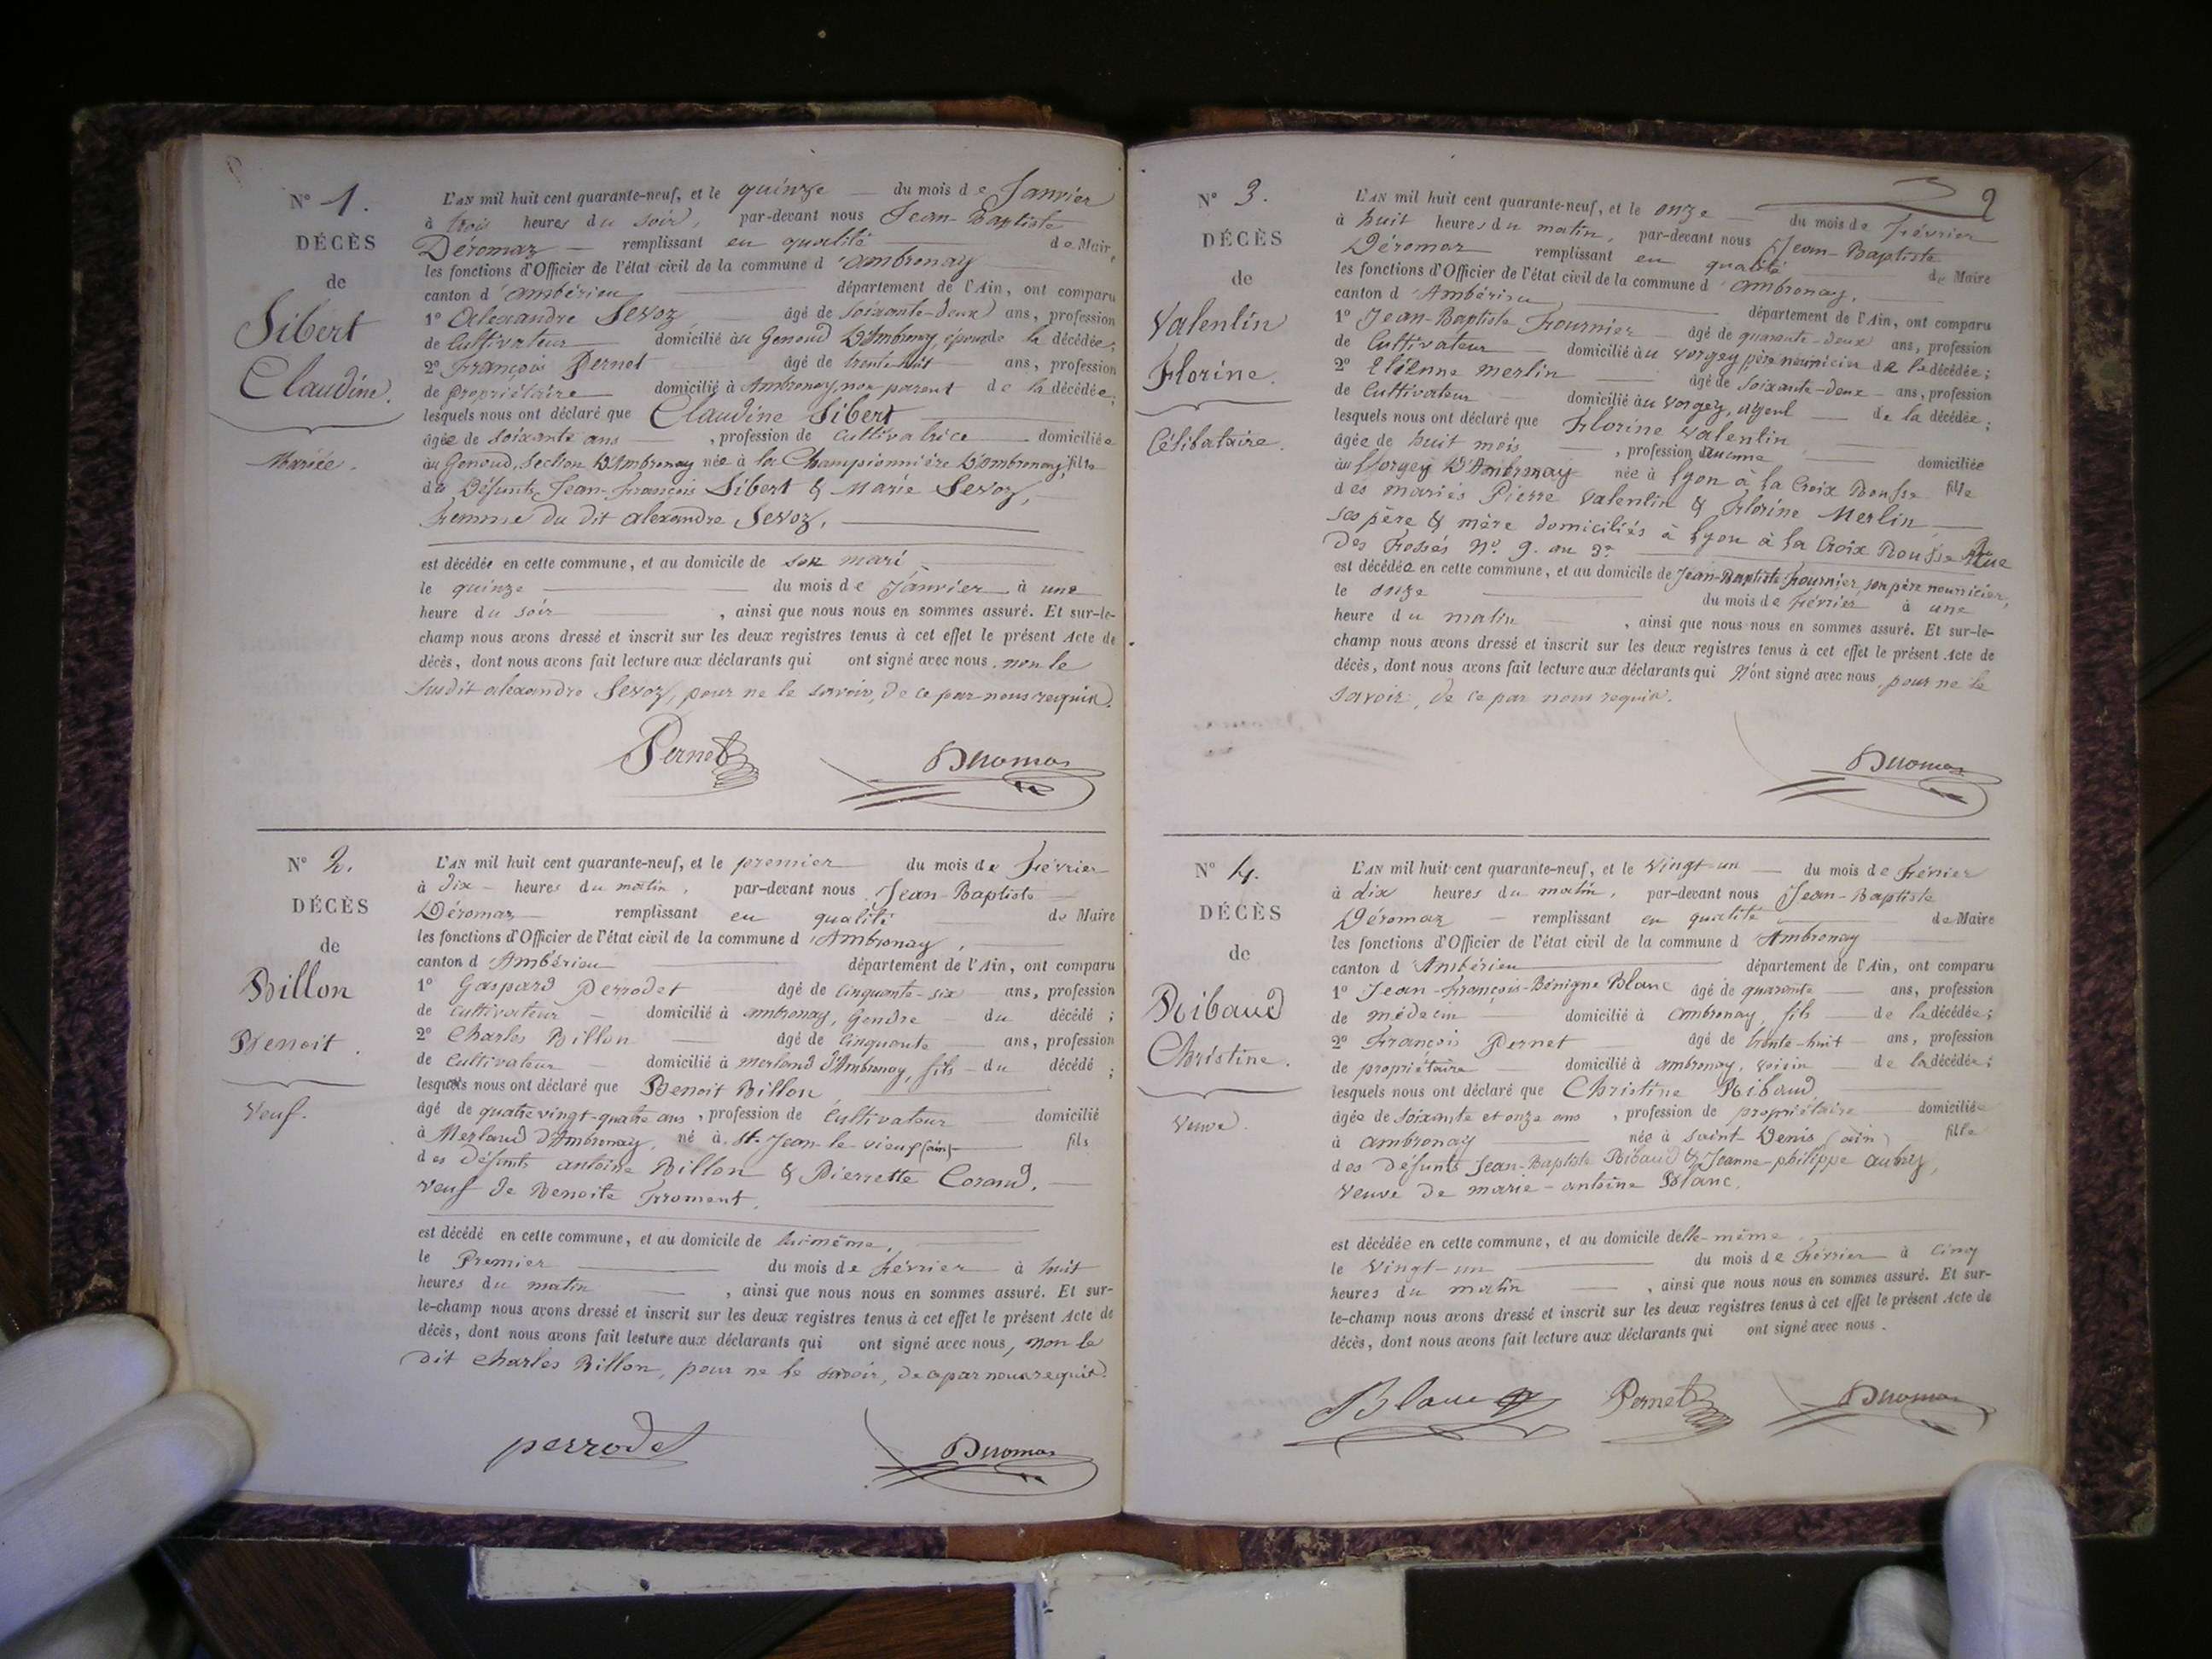 N° 1.
DÉCÈS
de
Sibert
Claudine.
Mariée.
L'AN mil huit cent quarante-neuf, et le quinze du mois de Janvier
à trois heures du soir, par-devant nous Jean-Baptiste
Déromaz remplissant en qualité de Maire
les fonctions d'Officier de l'état civil de la commune d'Ambronay
canton d'Ambérieu département de l'Ain, ont comparu
1° Alexandre Sevoz âgé de soixante-deux ans, profession
de Cultivateur domicilié au Genoud D'Ambronay, époux de la décédée;
2° François Pernet âgé de trente-huit ans, profession
de propriétaire domicilié à Ambronay, non parent de la décédée;
lesquels nous ont déclaré que Claudine Sibert
âgée de soixante ans, profession de Cultivatrice domiciliée
au Genoud, Section D'Ambronay née à la Championnière D'Ambronay, fille
des Défunts Jean-François Sibert & Marie Sevoz,
femme du dit Alexandre Sevoz,
est décédée en cette commune, et au domicile de son mari
le quinze du mois de Janvier à une
heure du soir, ainsi que nous nous en sommes assuré. Et sur-le-
champ nous avons dressé et inscrit sur les deux registres tenus à cet effet le présent Acte de
décès, dont nous avons fait lecture aux déclarants qui ont signé avec nous, non le
susdit alexandre Sevoz, pour ne le savoir, de ce par nous requis.
Pernet
Déromaz
N° 2.
DÉCÈS
de
Billon
Benoit.
Veuf.
L'AN mil huit cent quarante-neuf, et le premier du mois de Février
à dix heures du matin, par-devant nous Jean-Baptiste
Déromaz remplissant en qualité de Maire
les fonctions d'Officier de l'état civil de la commune d'Ambronay,
canton d'Ambérieu département de l'Ain, ont comparu
1° Gaspard Perrodet âgé de cinquante-six ans, profession
de cultivateur domicilié à ambronay, Gendre du décédé;
2° Charles Billon âgé de cinquante ans, profession
de Cultivateur domicilié à Merland d'Ambronay, fils du décédé;
lesquels nous ont déclaré que Benoit Billon
âgé de quatre vingt-quatre ans, profession de Cultivateur domicilié
à Merland d'Ambronay, né à St. Jean-le-vieux (ain) fils
des Défunts antoine Billon & Pierrette Corand,
veuf de Benoite Froment.
est décédé en cette commune, et au domicile de lui-même,
le Premier du mois de février à huit
heures du matin, ainsi que nous nous en sommes assuré. Et sur-
le-champ nous avons dressé et inscrit sur les deux registres tenus à cet effet le présent Acte de
décès, dont nous avons fait lecture aux déclarants qui ont signé avec nous, non le
dit Charles Billon, pour ne le savoir, de ce par nous requis.
perrodet
Déromaz
2
N° 3.
DÉCÈS
de
Valentin
Florine.
Célibataire.
L'AN mil huit cent quarante-neuf, et le onze du mois de Février
à huit heures du matin, par-devant nous Jean-Baptiste
Déromaz remplissant en qualité de Maire
les fonctions d'Officier de l'état civil de la commune d'Ambronay,
canton d'Ambérieu département de l'Ain, ont comparu
1° Jean-Baptiste Fournier âgé de quarante-deux ans, profession
de Cultivateur domicilié au Vorgey, père nourricier de la décédée;
2° Etienne Merlin âgé de soixante-deux ans, profession
de Cultivateur domicilié au Vorgey, ayeul de la décédée;
lesquels nous ont déclaré que Florine Valentin
âgée de huit mois, profession aucune domiciliée
au Vorgey D'Ambronay née à Lyon à la Croix Rousse fille
des mariés Pierre Valentin & Florine Merlin
ses père & mère domiciliés à Lyon à la Croix Rousse Rue
Des Fossés N° 9. au 3e
est décédée en cette commune, et au domicile de Jean-Baptiste Fournier, son père nourricier,
le onze du mois de février à une
heure du matin, ainsi que nous nous en sommes assuré. Et sur-le-
champ nous avons dressé et inscrit sur les deux registres tenus à cet effet le présent Acte de
décès, dont nous avons fait lecture aux déclarants qui n'ont signé avec nous, pour ne le
savoir, de ce par nous requis.
Déromaz
N° 4.
DÉCÈS
de
Ribaud
Christine.
Veuve.
L'AN mil huit cent quarante-neuf, et le vingt-un du mois de Février
à dix heures du matin, par-devant nous Jean-Baptiste
Déromaz remplissant en qualité de Maire
les fonctions d'Officier de l'état civil de la commune d'Ambronay
canton d'Ambérieu département de l'Ain, ont comparu
1° Jean-François-Bénigne Blanc âgé de quarante ans, profession
de médecin domicilié à ambronay, fils de la décédée;
2° François Pernet âgé de trente-huit ans, profession
de propriétaire domicilié à ambronay, voisin de la décédée;
lesquels nous ont déclaré que Christine Ribaud
âgée de soixante et onze ans, profession de propriétaire domiciliée
à ambronay née à saint-Denis (ain) fille
des Défunts Jean-Baptiste Ribaud & Jeanne-philippe aubry,
veuve de marie-antoine Blanc.
est décédée en cette commune, et au domicile d'elle-même
le vingt-un du mois de Février à cinq
heures du matin, ainsi que nous nous en sommes assuré. Et sur-
le-champ nous avons dressé et inscrit sur les deux registres tenus à cet effet le présent Acte de
décès, dont nous avons fait lecture aux déclarants qui ont signé avec nous.
Blanc
Pernet
Déromaz